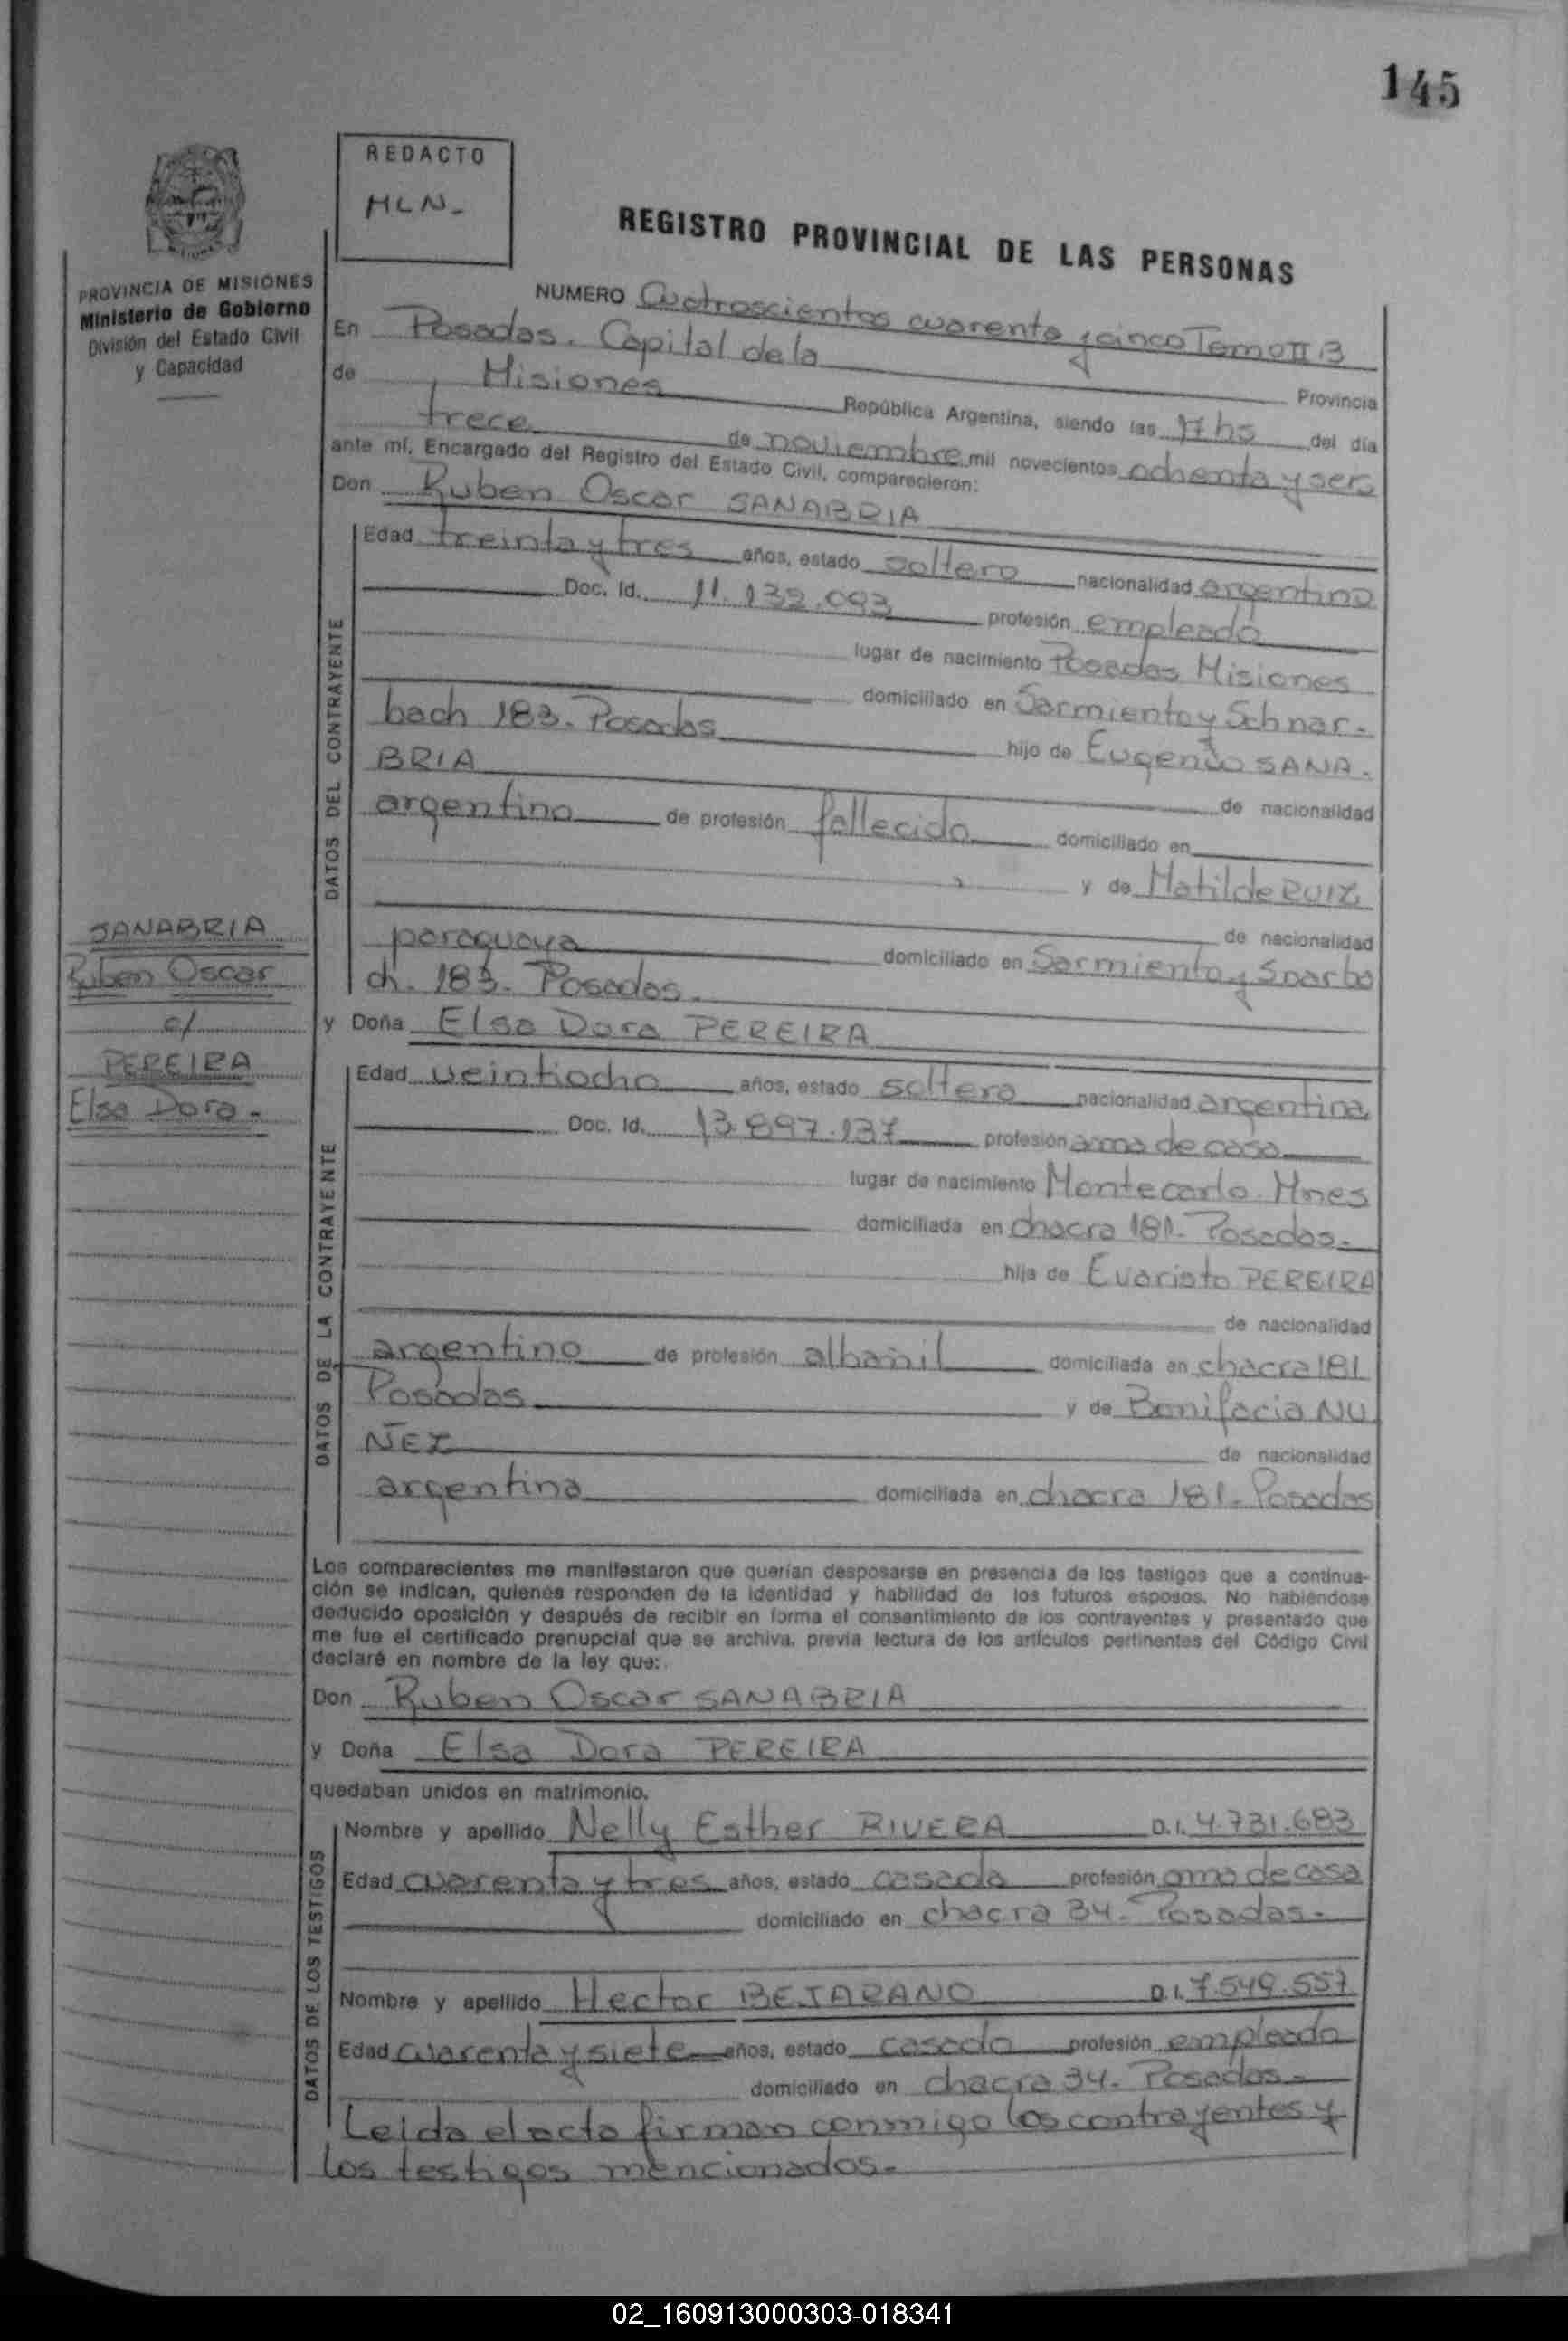 145
REDACTO
HLN-
REGISTRO PROVINCIAL DE LAS PERSONAS
PROVINCIA DE MISIONES
Ministerio de Gobierno
División del Estado Civil
y Capacidad
NUMERO Cuatroscientos cuarenta y cinco Tomo II B
En Posadas. Capital de la Provincia
de Misiones República Argentina, siendo las 17 hs del día
trece de noviembre mil novecientos ochenta y seis
ante mí, Encargado del Registro del Estado Civil, comparecieron:
Don Ruben Oscar SANABRIA
DATOS DEL CONTRAYENTE
Edad treinta y tres años, estado soltero nacionalidad argentino
Doc. Id. 11.132.093 profesión empleado
lugar de nacimiento Posadas Misiones
domiciliado en Sarmiento y Schnar-
bach 183. Posadas hijo de Eugenio SANA-
BRIA de nacionalidad
argentino de profesión fallecido domiciliado en
y de Matilde RUIZ
de nacionalidad
paraguaya domiciliado en Sarmiento y Snarba
ch. 183. Posadas.
SANABRIA
Ruben Oscar
c/
PEREIRA
Elsa Dora-
y Doña Elsa Dora PEREIRA
DATOS DE LA CONTRAYENTE
Edad veintiocho años, estado soltera nacionalidad argentina
Doc. Id. 13.897.137 profesión ama de casa
lugar de nacimiento Montecarlo Mnes
domiciliada en chacra 181- Posadas-
hija de Evaristo PEREIRA
de nacionalidad
argentino de profesión albañil domiciliada en chacra 181
Posadas y de Bonifacia NU
ÑEZ de nacionalidad
argentina domiciliada en chacra 181- Posadas
Los comparecientes me manifestaron que querían desposarse en presencia de los testigos que a continua-
ción se indican, quienes responden de la identidad y habilidad de los futuros esposos. No habiéndose
deducido oposición y después de recibir en forma el consentimiento de los contrayentes y presentado que
me fue el certificado prenupcial que se archiva, previa lectura de los artículos pertinentes del Código Civil
declaré en nombre de la ley que:
Don Ruben Oscar SANABRIA
y Doña Elsa Dora PEREIRA
quedaban unidos en matrimonio.
DATOS DE LOS TESTIGOS
Nombre y apellido Nelly Esther RIVERA D.I. 4.731.683
Edad cuarenta y tres años, estado casada profesión ama de casa
domiciliado en chacra 34- Posadas-
Nombre y apellido Hector BEJARANO D.I. 7.549.557
Edad cuarenta y siete años, estado casado profesión empleado
domiciliado en chacra 34- Posadas-
Leida el acta firman conmigo los contrayentes y
los testigos mencionados-
02_160913000303-018341